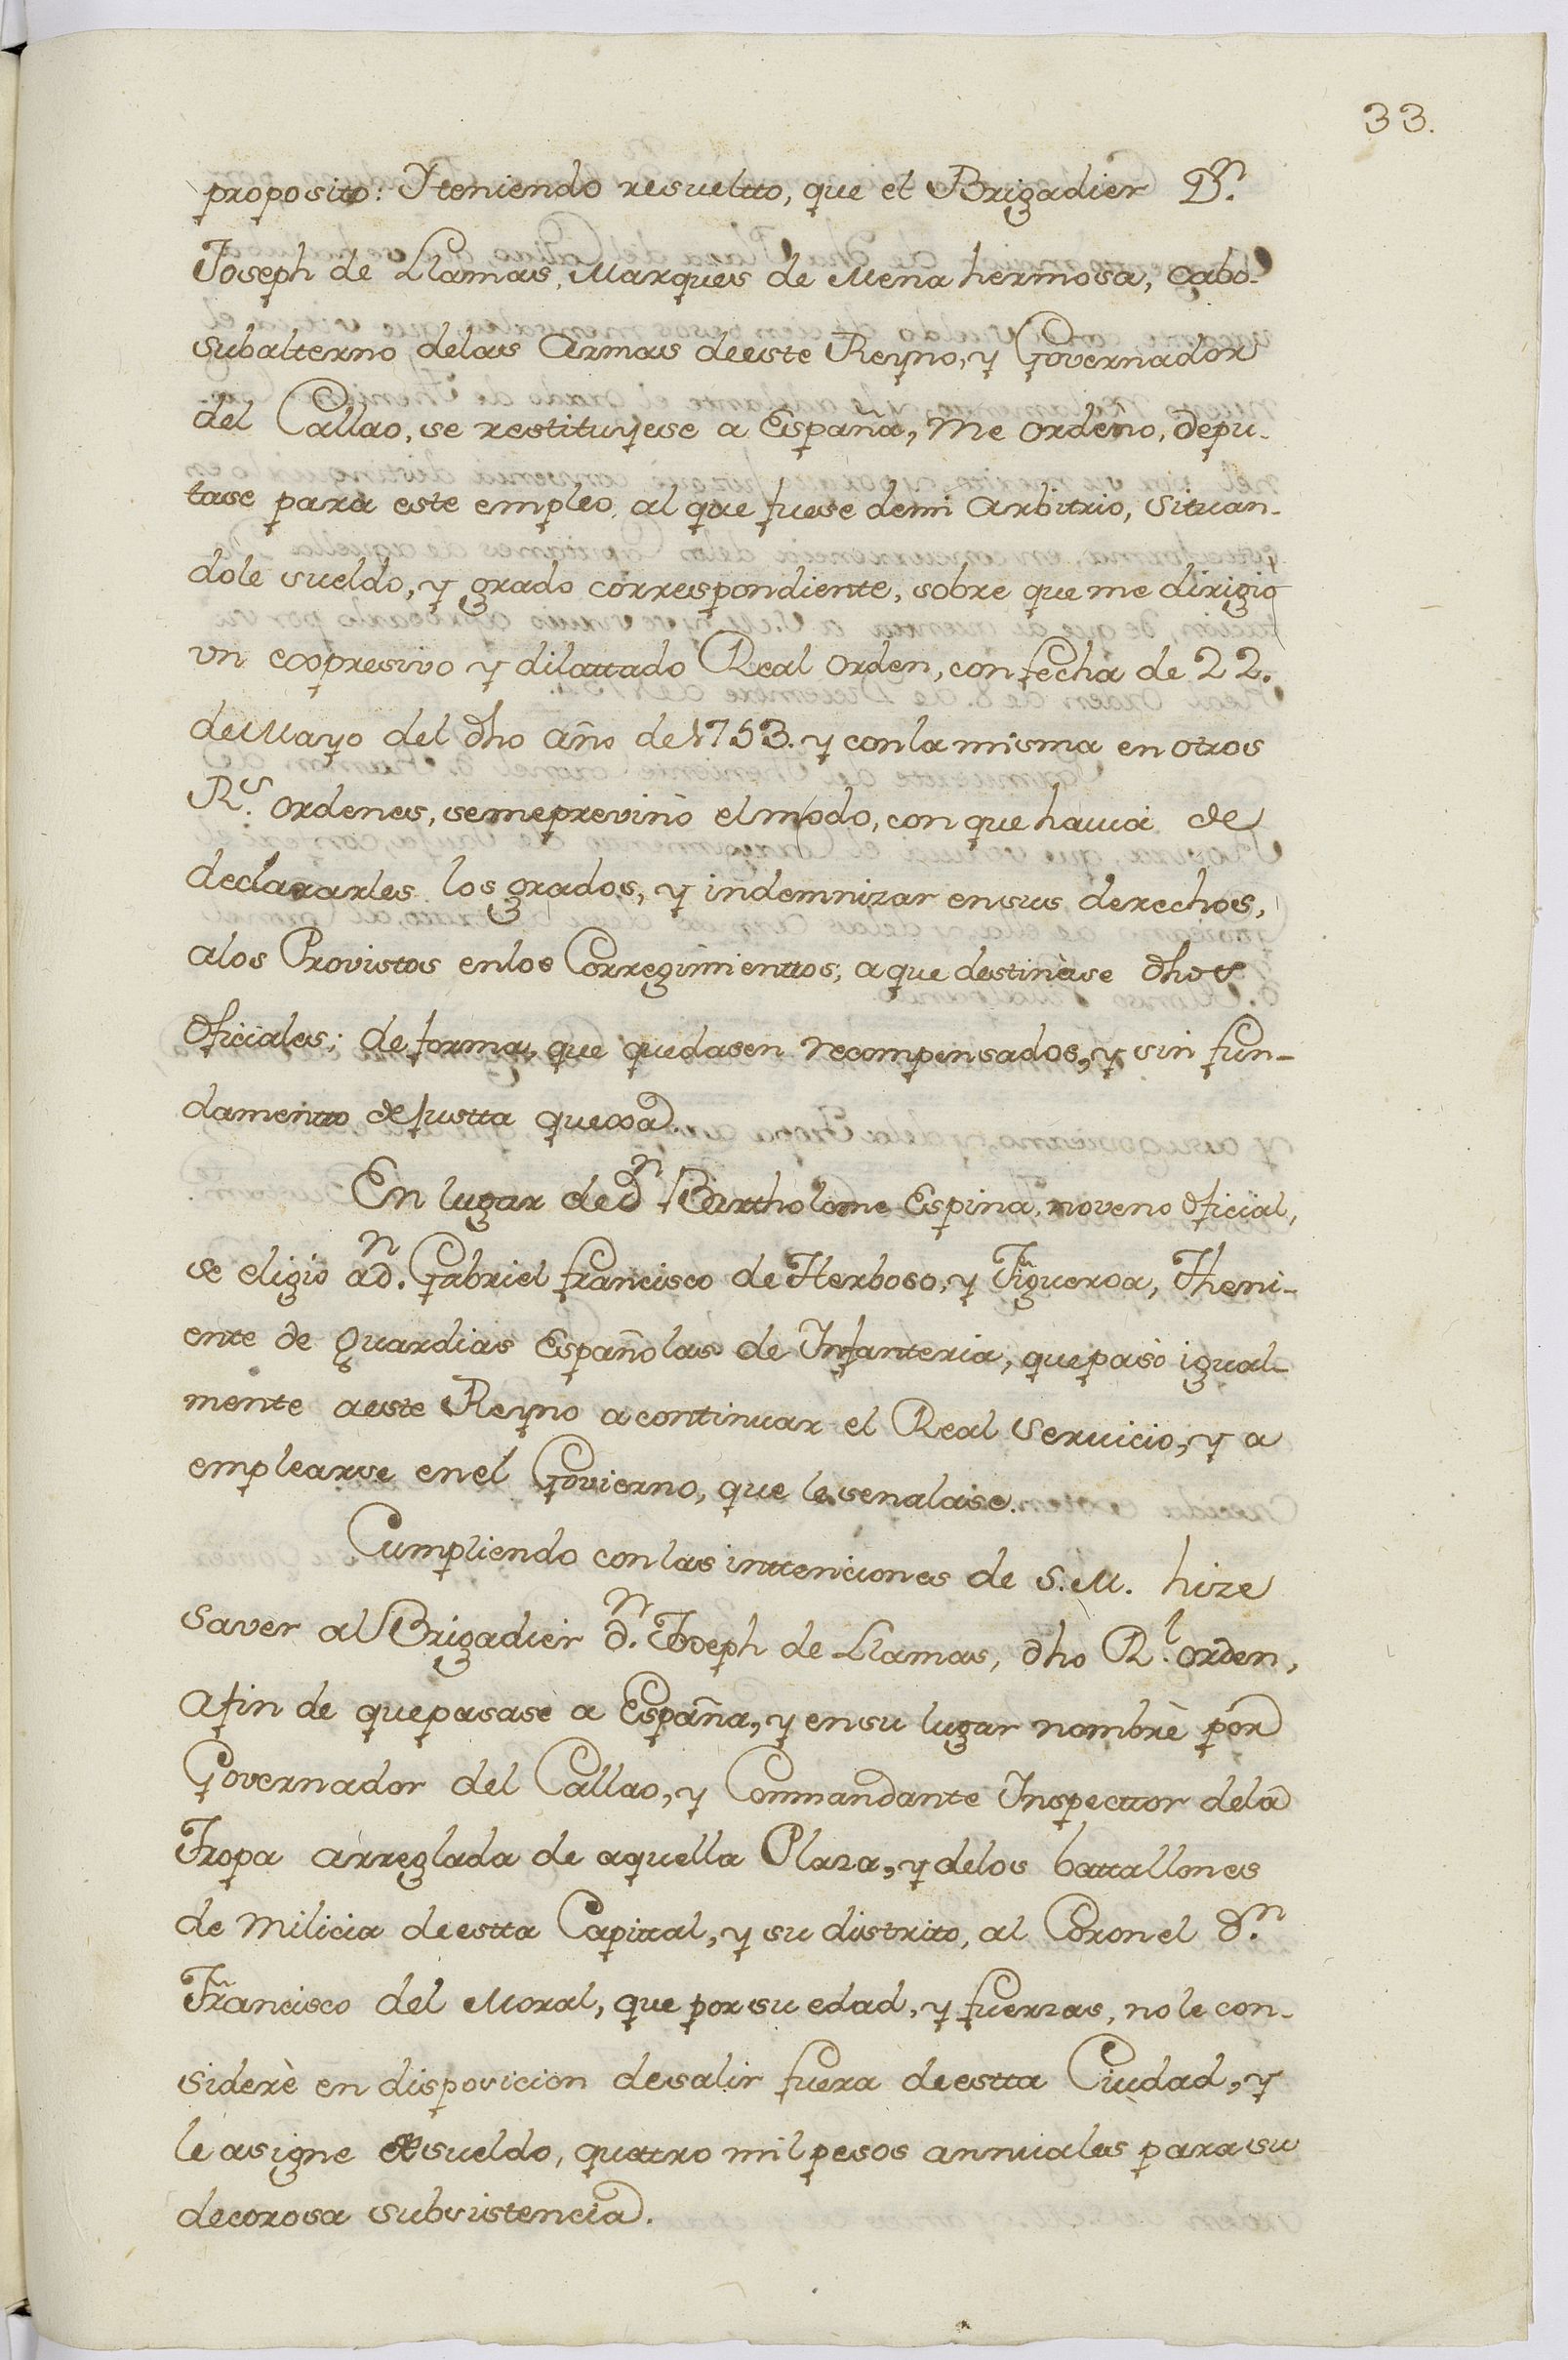 33.
proposito: Yteniendo resueltto, que el Brigadier Dn.
Joseph de Llamas, Marquès de Mena hermosa, cabo-
subalterno delas Armas deeste Reyno, y Governador
del Callao, se restituyese a España, me ordeno, depu-
tase para este empleo, al que fuese demi arbitrio, situan-
dole sueldo, y grado correspondiente, sobre que me dirigio
vn expresivo y dilattado Real orden, con fecha de 22.
de Mayo del dho año de 1753. y conla misma en otros
Rs. ordenes, semeprevino elmodo, con que havia de
declararles los grados, y indemnizar ensus derechos,
alos Provistos enlos Corregimienttos, a que destinàse dhos
oficiales; de forma, que quedasen recompensados, y sin fun-
damentto de justta quexa.
En lugar de dn Bartholome Espina, noveno oficial,
se eligio a dn. Gabriel francisco de Herboso, y Figueroa, Theni-
ente de guardias Españolas de Infanteria, que pasò igual-
mente aeste Reyno a continuar el Real Servicio, y a
emplearse enel Govierno, que le senalase.
Cumpliendo con las inttenciones de S. M. hize
saver al Brigadier dn. Joseph de Llamas, dho Rl. orden,
afin de que pasase a España, y ensu lugar nombrè por
Governador del Callao, y Commandante Inspecttor dela
Tropa arreglada de aquella Plaza, y delos battallones
de Milicia de estta Capittal, y su distrito, al Coronel dn.
Francisco del Moral, que por su edad, y fuerzas, no le con-
siderè en disposicion desalir fuera de estta Ciudad, y
le asigne de sueldo, quattro mil pesos annuales para su
decorosa subsistencia.